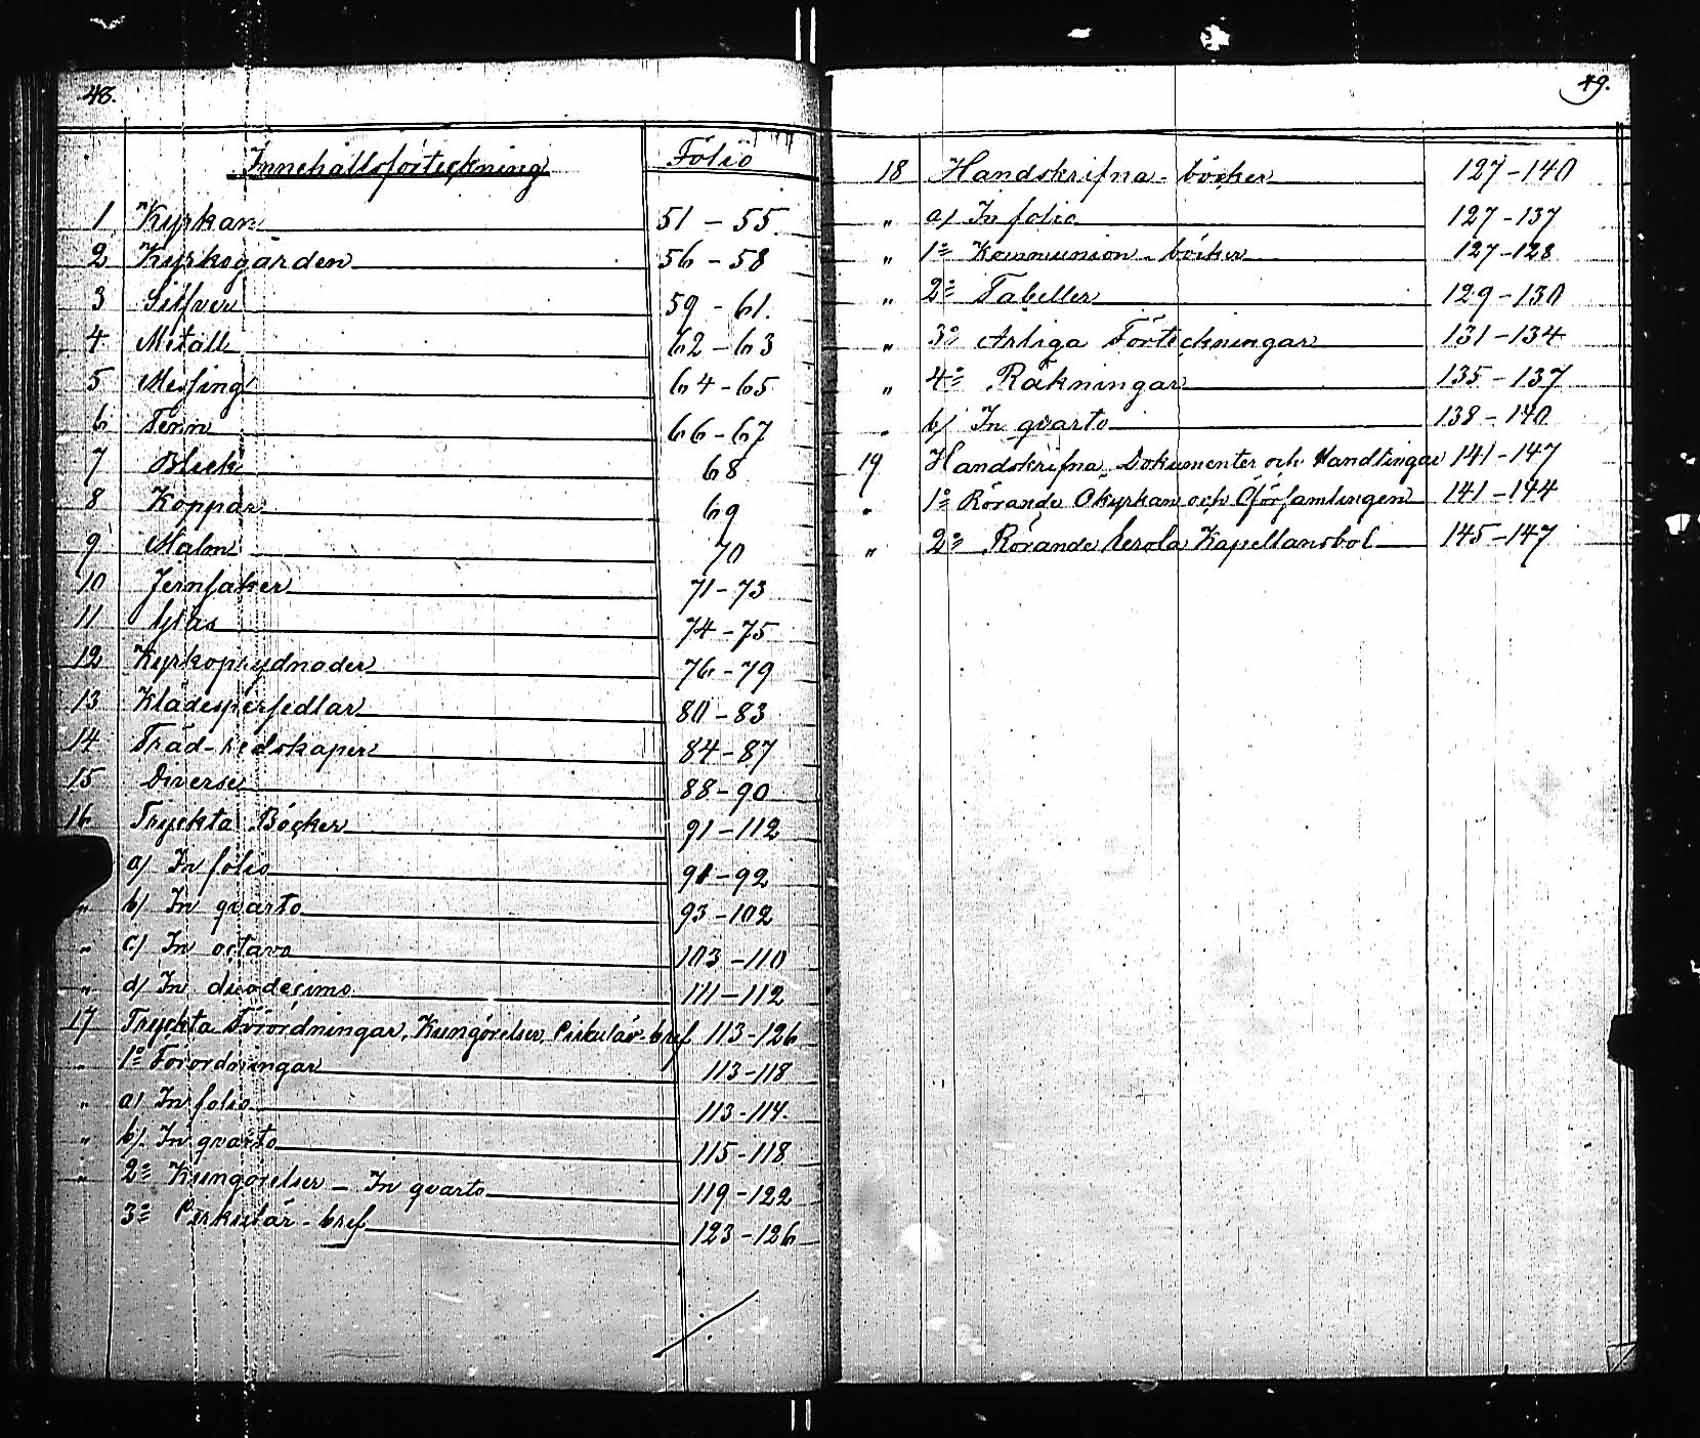 48.
Innehållsförteckning Folio
1 Kyrkan 51-55
2 Kyrkogården 56-58
3 Silfver 59-61.
4 Metall 62-63
5 Messing 64-65
6 Tenn 66-67
7 Bleck 68
8 Koppar 69
9 Malm 70
10 Jernsaker 71-73
11 Glas 74-75
12 Kyrkoprydnader 76-79
13 Klädespersedlar 80-83
14 Träd-redskaper 84-87
15 Diverse 88-90
16 Tryckta Böcker 91-112
a) In folio 91-92
" b) In qvarto 93-102
" c) In octavo 103-110
" d) In duodecimo 111-112
17 Tryckta Förordningar, Kungörelser, Cirkulär-bref 113-126
" 1º Förordningar 113-118
" a) In folio 113-114.
" b) In qvarto 115-118
" 2º Kungörelser - In qvarto 119-122
3º Cirkulär-bref 123-126
49.
18 Handskrifna-böcker 127-140
" a) In folio 127-137
" 1º Kommunion-böcker 127-128
" 2º Tabeller 129-130
" 3º Årliga Förteckningar 131-134
" 4º Räkningar 135-137
" b) In qvarto 138-140
19 Handskrifna Dokumenter och Handlingar 141-147
" 1º Rörande Kyrkan och Församlingen 141-144
" 2º Rörande Kapellansbol 145-147